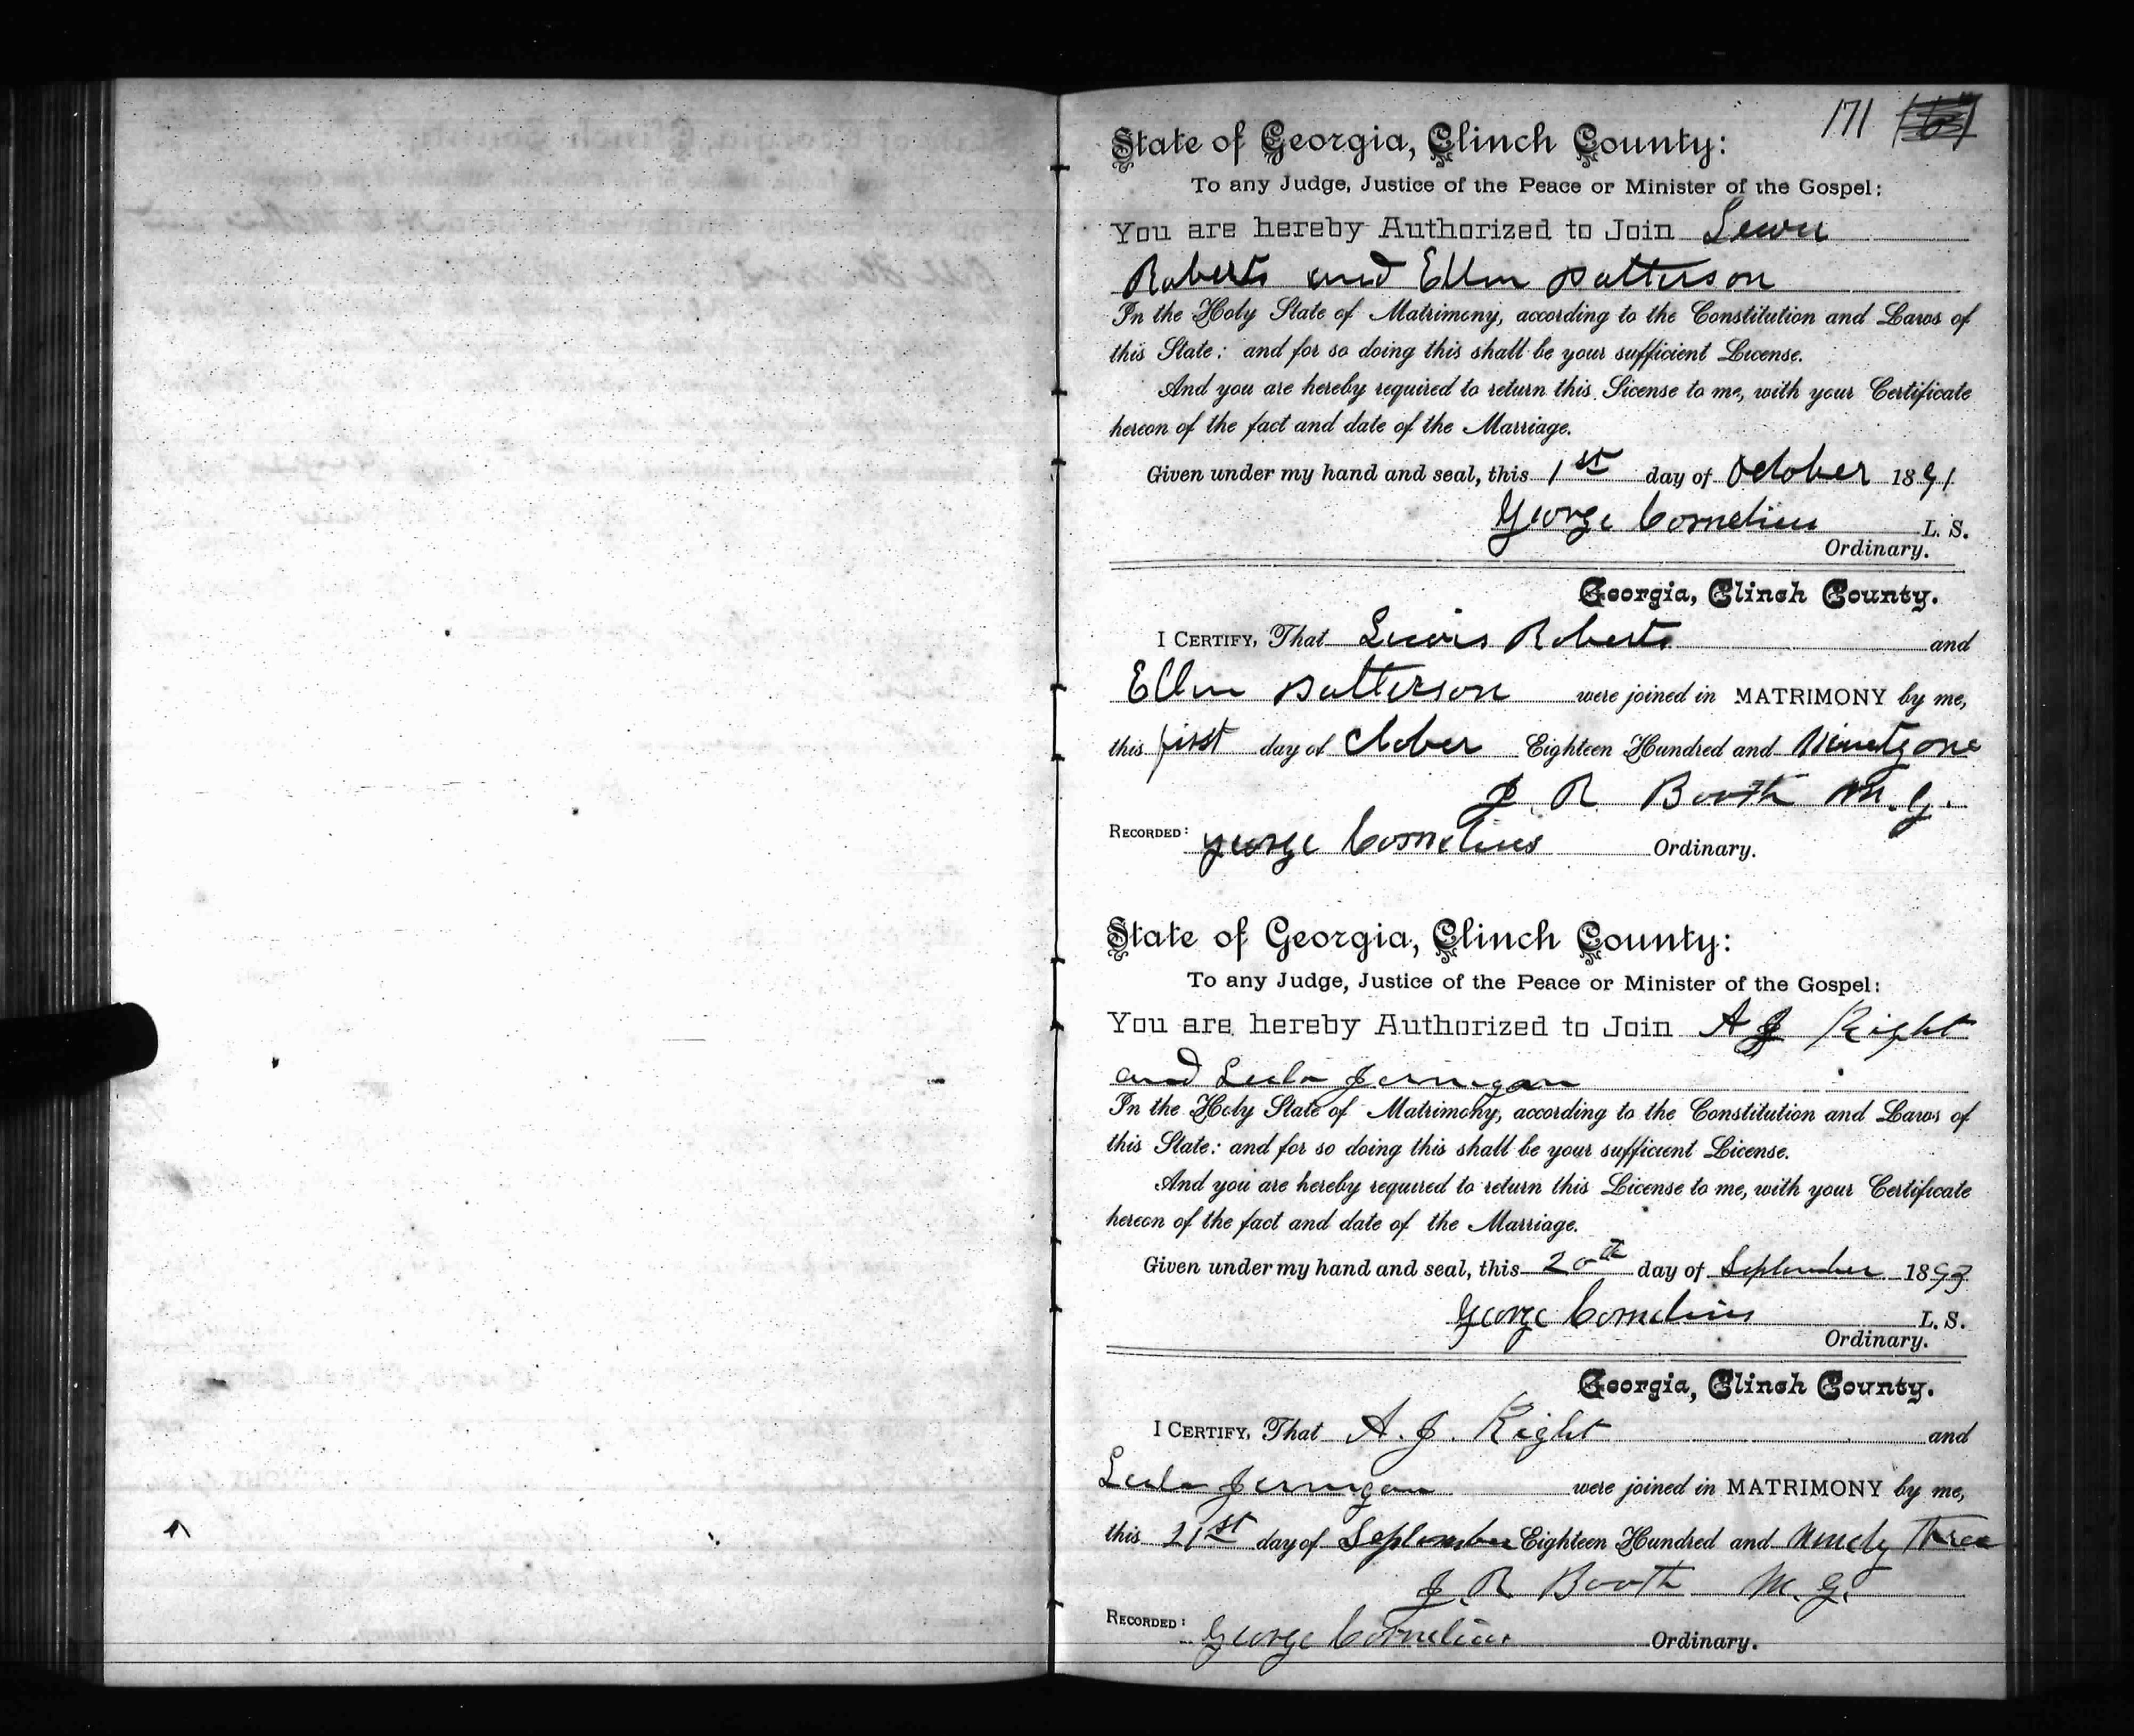 171
State of Georgia, Clinch County:
To any Judge, Justice of the Peace or Minister of the Gospel:
You are hereby Authorized to Join Lewis
Roberts and Ellen Patterson
In the Holy State of Matrimony, according to the Constitution and Laws of
this State: and for so doing this shall be your sufficient License.
And you are hereby required to return this License to me, with your Certificate
hereon of the fact and date of the Marriage.
Given under my hand and seal, this 1st day of October 1891.
George Cornelius L. S.
Ordinary.
Georgia, Clinch County.
I CERTIFY, That Lewis Roberts and
Ellen Patterson were joined in MATRIMONY by me,
this first day of Ctober Eighteen Hundred and Ninety one
J. R. Booth M. G.
RECORDED: George Cornelius Ordinary.
State of Georgia, Clinch County:
To any Judge, Justice of the Peace or Minister of the Gospel:
You are hereby Authorized to Join A J Right
and Lula Jernigan
In the Holy State of Matrimony, according to the Constitution and Laws of
this State: and for so doing this shall be your sufficient License.
And you are hereby required to return this License to me, with your Certificate
hereon of the fact and date of the Marriage.
Given under my hand and seal, this 20th day of September 1893
George Cornelius L. S.
Ordinary.
Georgia, Clinch County.
I CERTIFY, That A. J. Right and
Lula Jernigan were joined in MATRIMONY by me,
this 21st day of September Eighteen Hundred and Ninety Three
J. R Booth M. G.
RECORDED: George Cornelius Ordinary.